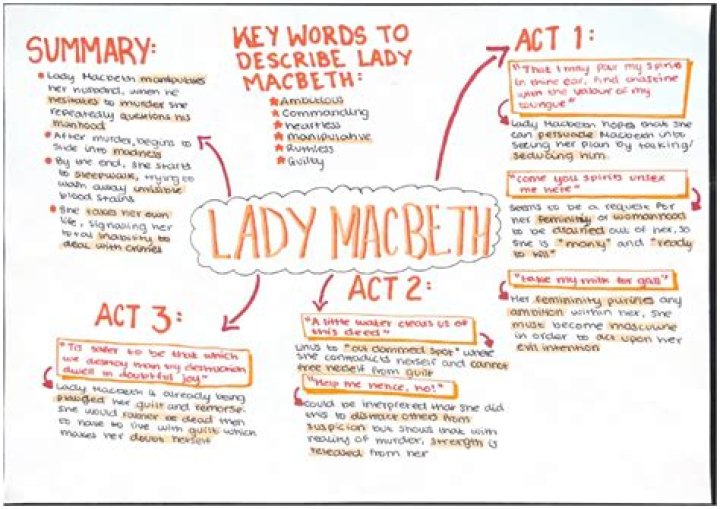 SUMMARY:
Lady Macbeth manipulates
her husband, when he
hesitates to murder she
repeatedly questions his
manhood
After murder, begins to
slide into madness
By the end, she starts
to sleepwalk, trying to
wash away invisible
blood stains
She takes her own
life, signaling her
total inability to
deal with crimes
KEY WORDS TO
DESCRIBE LADY
MACBETH:
Ambitious
Commanding
heartless
manipulative
Ruthless
Guilty
LADY MACBETH
ACT 1:
"That I may pour my spirits
in thine ear, And chastise
with the valour of my
tongue"
Lady Macbeth hopes that she
can persuade Macbeth into
seeing her plan by talking/
seducing him.
"come you spirits unsex
me here"
seems to be a request for
her femininity or womanhood
to be drained out of her, so
she is "manly" and "ready
to kill"
"take my milk for gall"
Her femininity purifies any
ambition within her, she
must become masculine
in order to act upon her
evil intention
ACT 2:
"A little water clears us of
this deed"
links to "out dammed spot" where
she contradicts herself and cannot
free herself from guilt
"Help me hence, ho!"
could be interpreted that she did
this to distract others from
suspicion but shows that with
reality of murder, strength is
released from her
ACT 3:
"Tis safer to be that which
we destroy than by destruction
dwell in doubtful joy"
Lady Macbeth is already being
plagued her guilt and remorse.
she would rather be dead then
to have to live with guilt which
makes her doubt herself